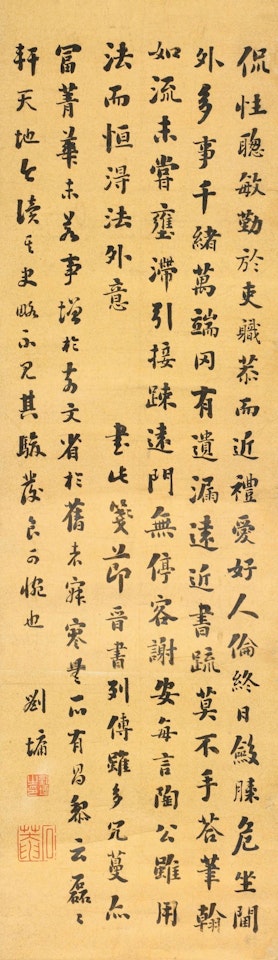 侃性聰敏勤於吏職恭而近禮愛好人倫終日斂膝危坐閫
外多事千緒萬端罔有遺漏遠近書疏莫不手荅筆翰
如流未嘗壅滯引接疎遠門無停客謝安每言陶公雖用
法而恒得法外意 書此箋節晉書列傳雖多冗蔓亦
富菁華未若事增於前文省於舊者寂寥無所有昌黎云磊〻
軒天地今讀其史略不見其駿發良可惋也 劉墉
石菴